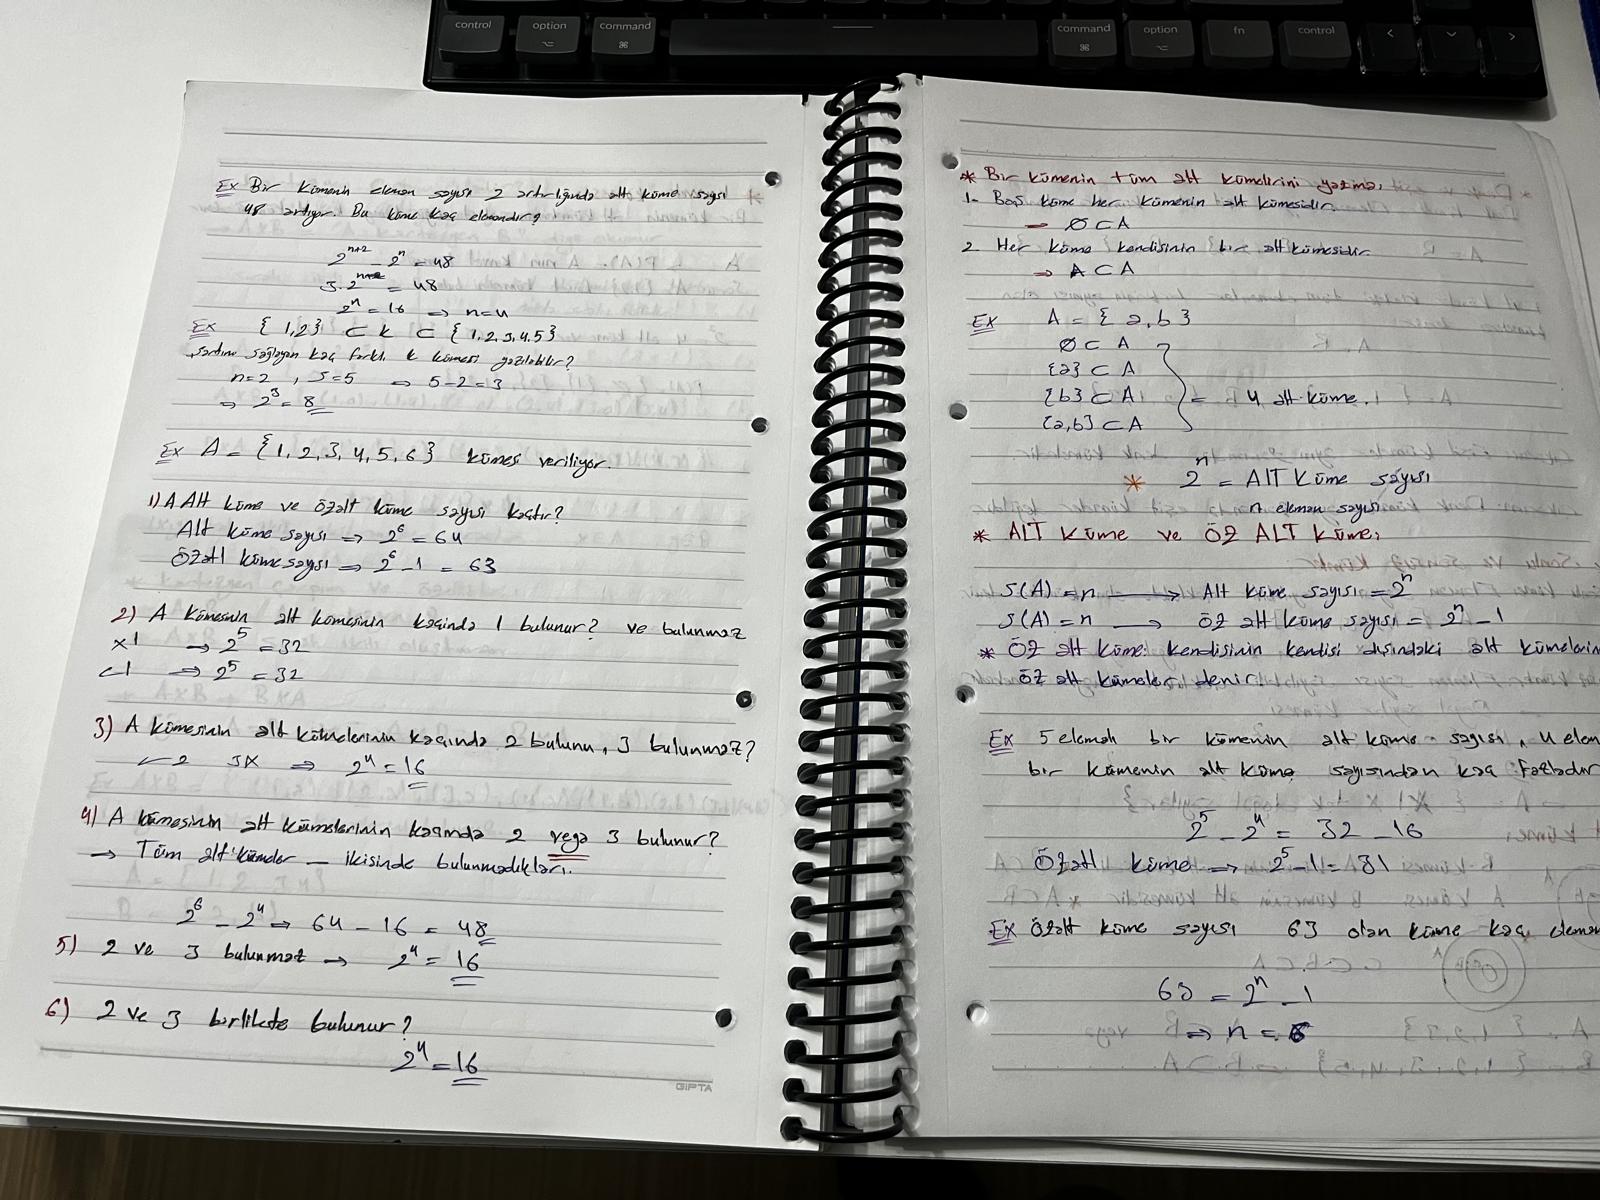 control
option
command
command
option
fn
control
Ex Bir kümenin eleman sayısı 2 artırlığında alt küme sayısı
48 artıyor. Bu küme kaç elemandır?
2^{n+2} - 2^n = 48
3.2^n = 48
2^n = 16 ⇒ n=4
Ex {1,2} ⊂ k ⊂ {1,2,3,4,5}
şartını sağlayan kaç farklı k kümesi yazılabilir?
n=2 , s=5 ⇒ 5-2=3
⇒ 2^3 = 8
Ex A = {1, 2, 3, 4, 5, 6} kümesi veriliyor.
1) A Alt küme ve özalt küme sayısı kaçtır?
Alt küme sayısı ⇒ 2^6 = 64
Özatl küme sayısı ⇒ 2^6 - 1 = 63
2) A kümesinin alt kümesinin kaçında 1 bulunur? ve bulunmaz
x1 → 2^5 = 32
✓1 ⇒ 2^5 = 32
3) A kümesinin alt kümelerinin kaçında 2 bulunu, 3 bulunmaz?
✓2 3x ⇒ 2^4 = 16
4) A kümesinin alt kümelerinin kaçında 2 veya 3 bulunur?
→ Tüm alt kümeler - ikisinde bulunmadıkları.
2^6 - 2^4 → 64 - 16 = 48
5) 2 ve 3 bulunmaz → 2^4 = 16
6) 2 ve 3 birlikte bulunur?
2^4 = 16
GIPTA
* Bir kümenin tüm alt kümelerini yazma.
1- Boş küme her kümenin alt kümesidir.
→ ∅ ⊂ A
2. Her küme kendisinin bir alt kümesidir.
⇒ A ⊂ A
Ex A = {a,b}
∅ ⊂ A
{a} ⊂ A
{b} ⊂ A = 4 alt küme.
{a,b} ⊂ A
* 2^n = Alt Küme sayısı
n eleman sayısı
* Alt Küme ve ÖZ ALT Küme:
s(A) = n → Alt küme sayısı = 2^n
s(A) = n → öz alt küme sayısı = 2^n - 1
* Öz alt küme: kendisinin kendisi dışındaki alt kümelerin
öz alt kümeler denir.
Ex 5 eleman bir kümenin alt küme sayısı, 4 elem
bir kümenin alt küme sayısından kaç fazladır
2^5 - 2^4 = 32 - 16
Özatl küme → 2^5 - 1 = 31
Ex özalt küme sayısı 63 olan küme kaç eleman
63 = 2^n - 1
⇒ n = 6